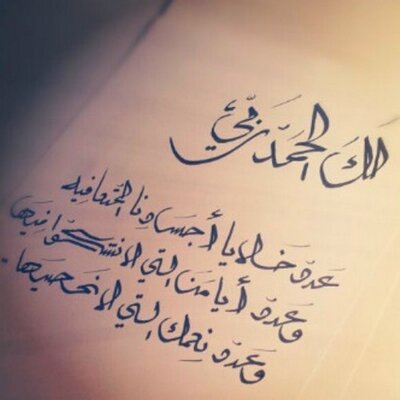 لك الحمد ربي
عدد خلايا أجسادنا المتعافيه
وعدد أيامنا التي لا نشكوا فيها
وعدد نعمك التي لا نحصيها